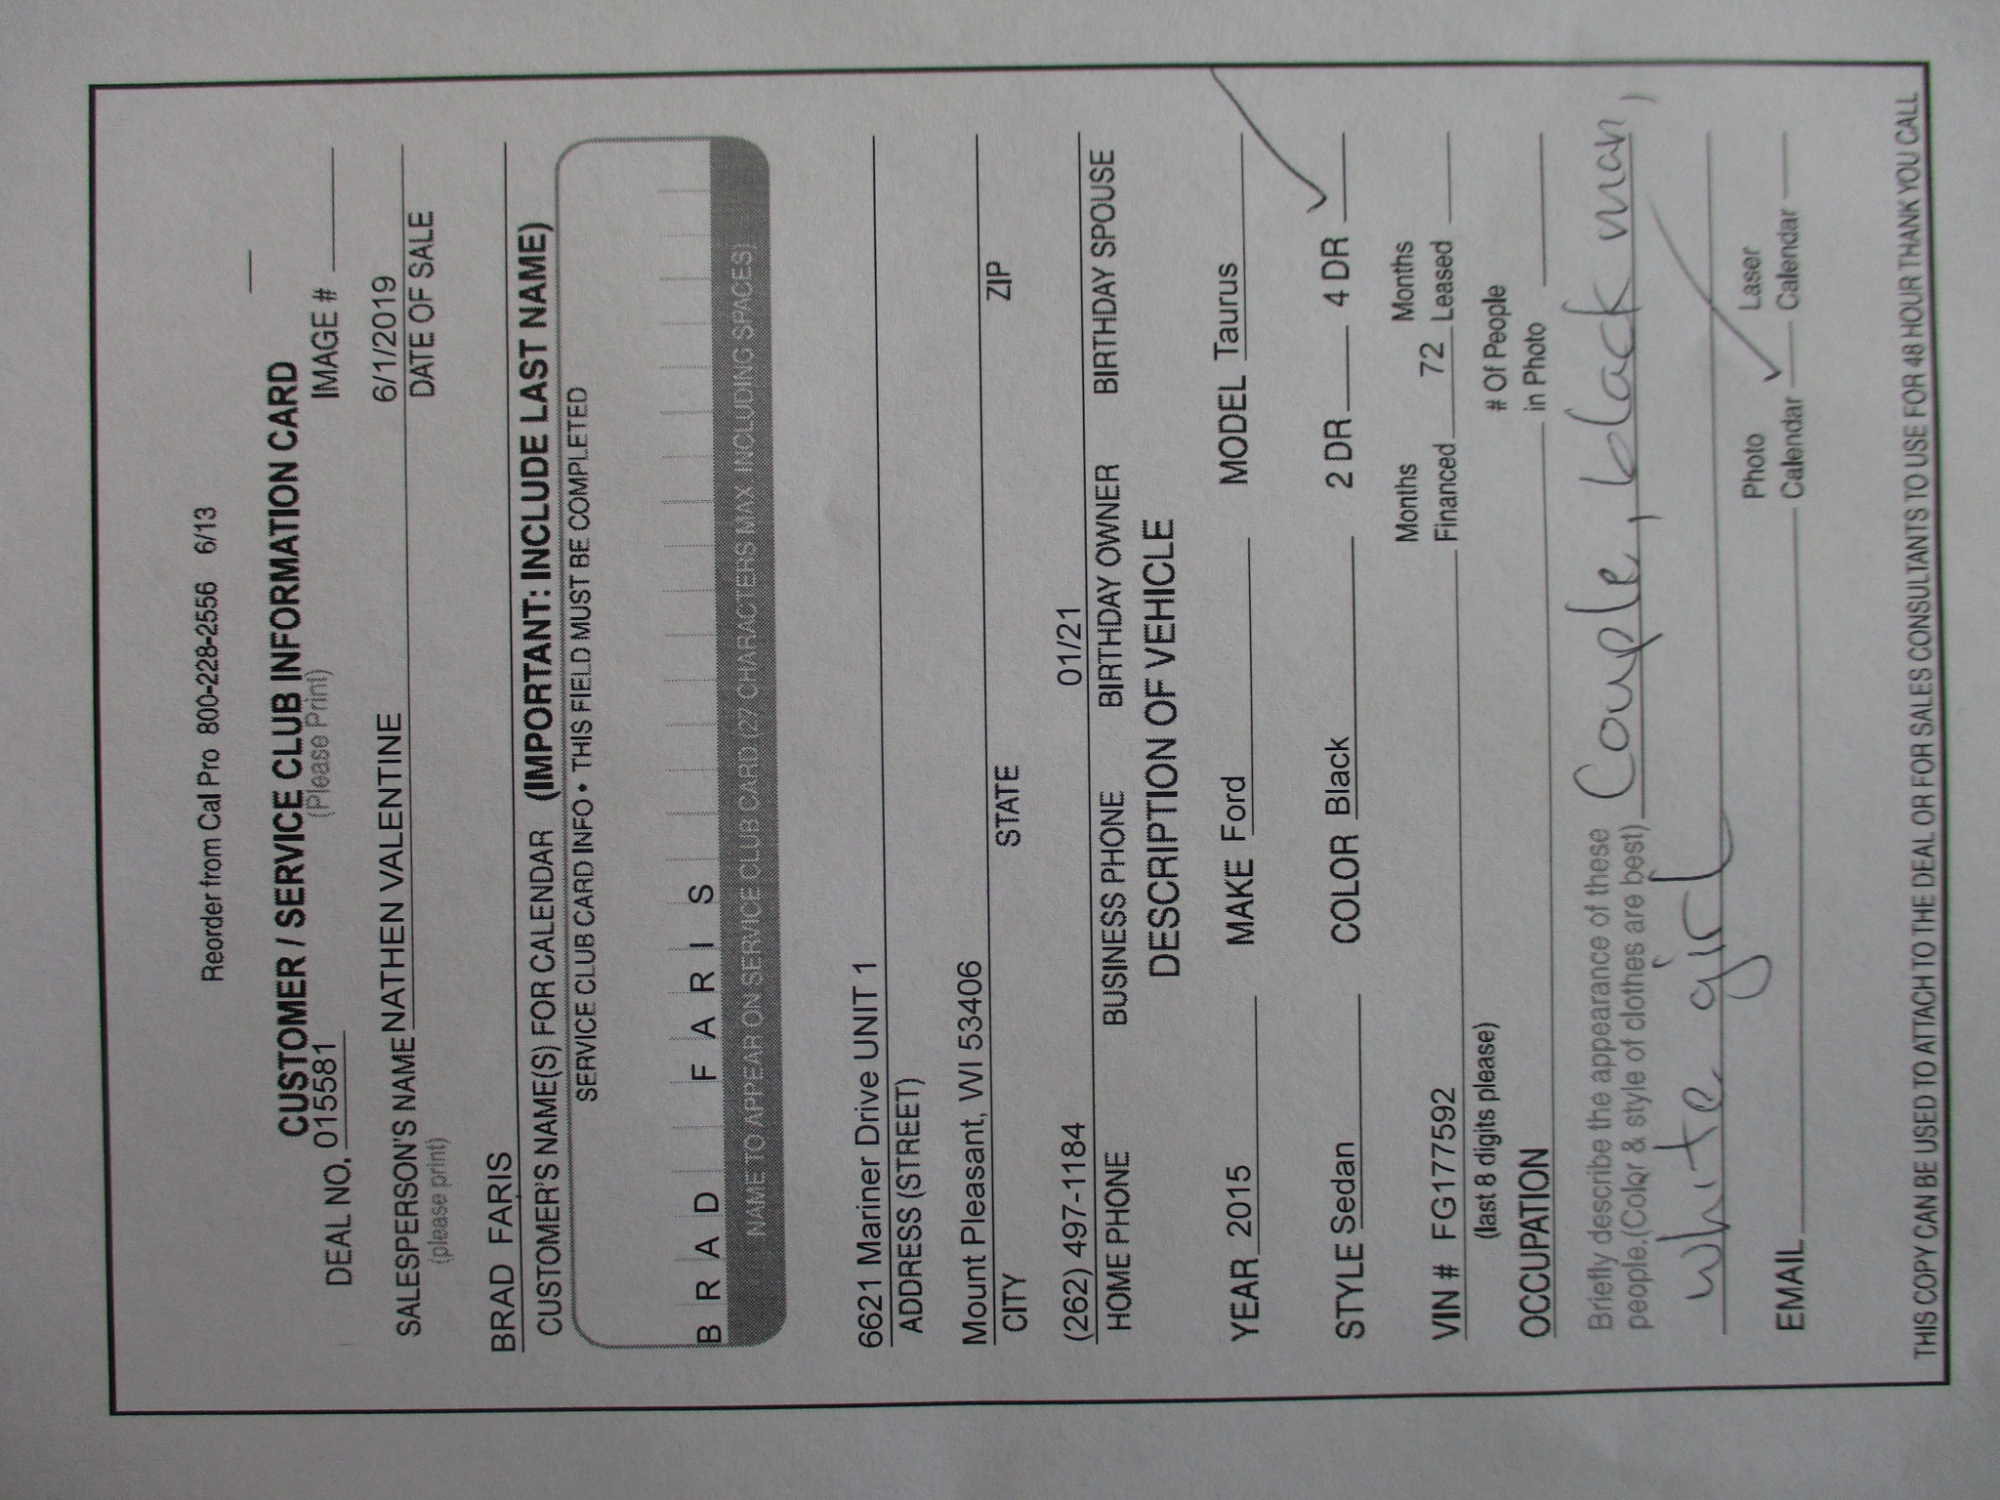 Reorder from Cal Pro 800-228-2556 6/13
CUSTOMER / SERVICE CLUB INFORMATION CARD
(Please Print)
DEAL NO. 015581 IMAGE #
SALESPERSON'S NAME NATHEN VALENTINE 6/1/2019
(please print) DATE OF SALE
BRAD FARIS
CUSTOMER'S NAME(S) FOR CALENDAR (IMPORTANT: INCLUDE LAST NAME)
SERVICE CLUB CARD INFO • THIS FIELD MUST BE COMPLETED
B R A D F A R I S
NAME TO APPEAR ON SERVICE CLUB CARD (27 CHARACTERS MAX INCLUDING SPACES)
6621 Mariner Drive UNIT 1
ADDRESS (STREET)
Mount Pleasant, WI 53406
CITY STATE ZIP
(262) 497-1184 01/21
HOME PHONE BUSINESS PHONE BIRTHDAY OWNER BIRTHDAY SPOUSE
DESCRIPTION OF VEHICLE
YEAR 2015 MAKE Ford MODEL Taurus
STYLE Sedan COLOR Black 2 DR 4 DR ✓
Months Months
VIN # FG177592 Financed 72 Leased
(last 8 digits please)
# Of People
OCCUPATION in Photo
Briefly describe the appearance of these
people.(Color & style of clothes are best) Couple, black man,
white girl
Photo Laser
EMAIL Calendar ✓ Calendar
THIS COPY CAN BE USED TO ATTACH TO THE DEAL OR FOR SALES CONSULTANTS TO USE FOR 48 HOUR THANK YOU CALL